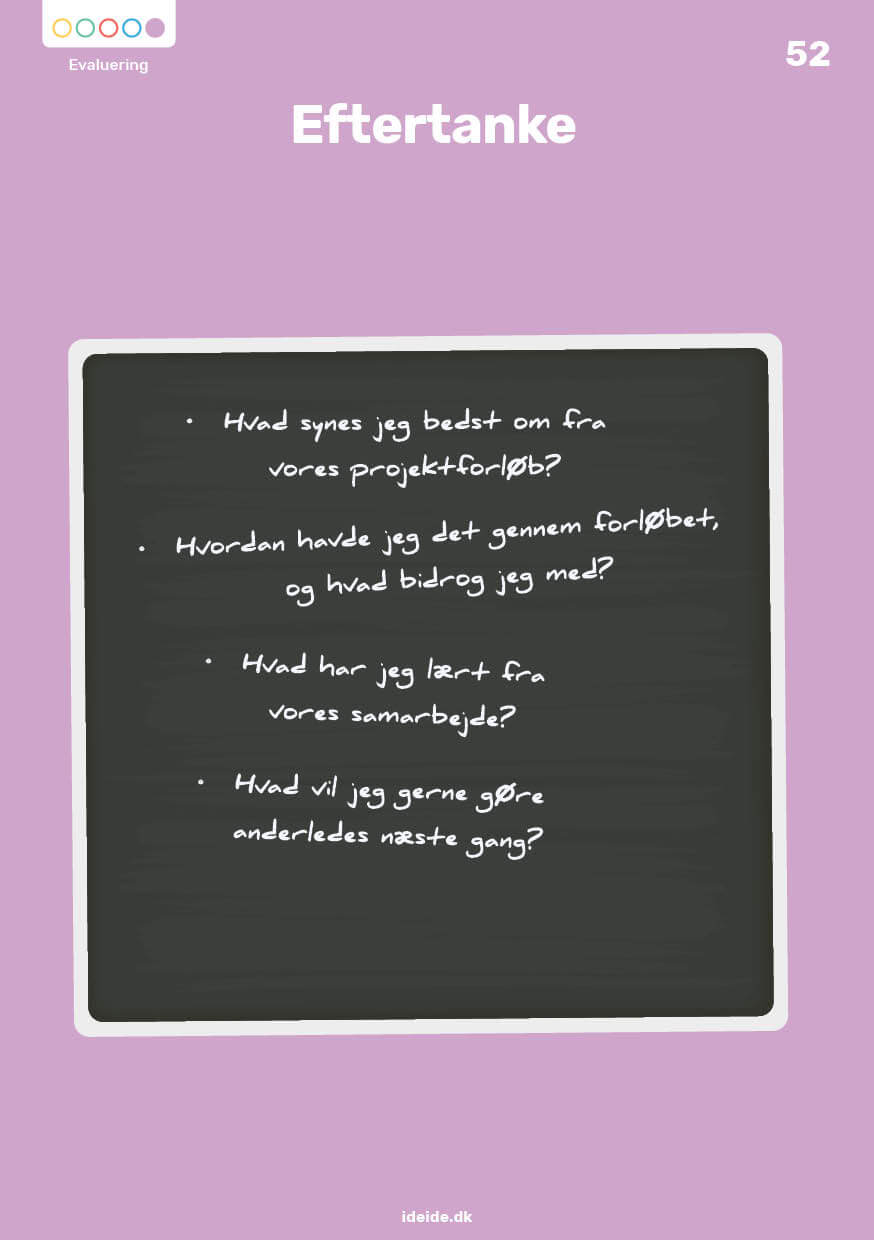 Evaluering
52
Eftertanke
• Hvad synes jeg bedst om fra
vores projektforløb?
• Hvordan havde jeg det gennem forløbet,
og hvad bidrog jeg med?
• Hvad har jeg lært fra
vores samarbejde?
• Hvad vil jeg gerne gøre
anderledes næste gang?
ideide.dk